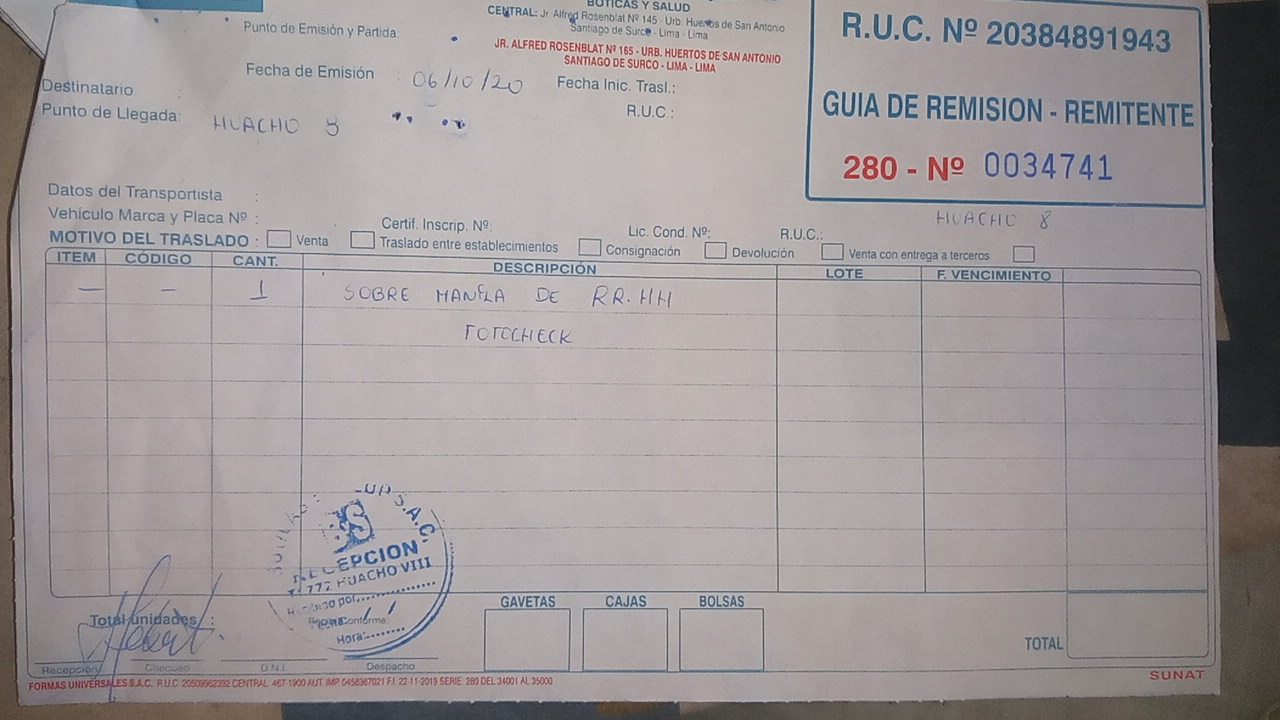 BOTICAS Y SALUD
CENTRAL: Jr. Alfred Rosenblat Nº 145 - Urb. Huertos de San Antonio
Santiago de Surco - Lima - Lima
JR. ALFRED ROSENBLAT Nº 165 - URB. HUERTOS DE SAN ANTONIO
SANTIAGO DE SURCO - LIMA - LIMA
R.U.C. Nº 20384891943
GUIA DE REMISION - REMITENTE
280 - Nº 0034741
HUACHO 8
Punto de Emisión y Partida:
Fecha de Emisión : 06/10/20 Fecha Inic. Trasl.:
Destinatario : R.U.C.:
Punto de Llegada: HUACHO 8
Datos del Transportista :
Vehículo Marca y Placa Nº : Certif. Inscrip. Nº: Lic. Cond. Nº: R.U.C.:
MOTIVO DEL TRASLADO : Venta Traslado entre establecimientos Consignación Devolución Venta con entrega a terceros
ITEM CÓDIGO CANT. DESCRIPCIÓN LOTE F. VENCIMIENTO
— — 1 SOBRE MANILA DE RR.HH
FOTOCHECK
S.A.C.
RECEPCION
HUACHO VIII
Recibido por:
Hora:
Total unidades :
Conforme:
GAVETAS CAJAS BOLSAS
TOTAL
Recepción Chequeo D.N.I. Despacho
FORMAS UNIVERSALES S.A.C. R.U.C. 20509962392 CENTRAL 467-1900 AUT. IMP. 0458367021 F.I. 22-11-2019 SERIE: 280 DEL 34001 AL 35000
SUNAT